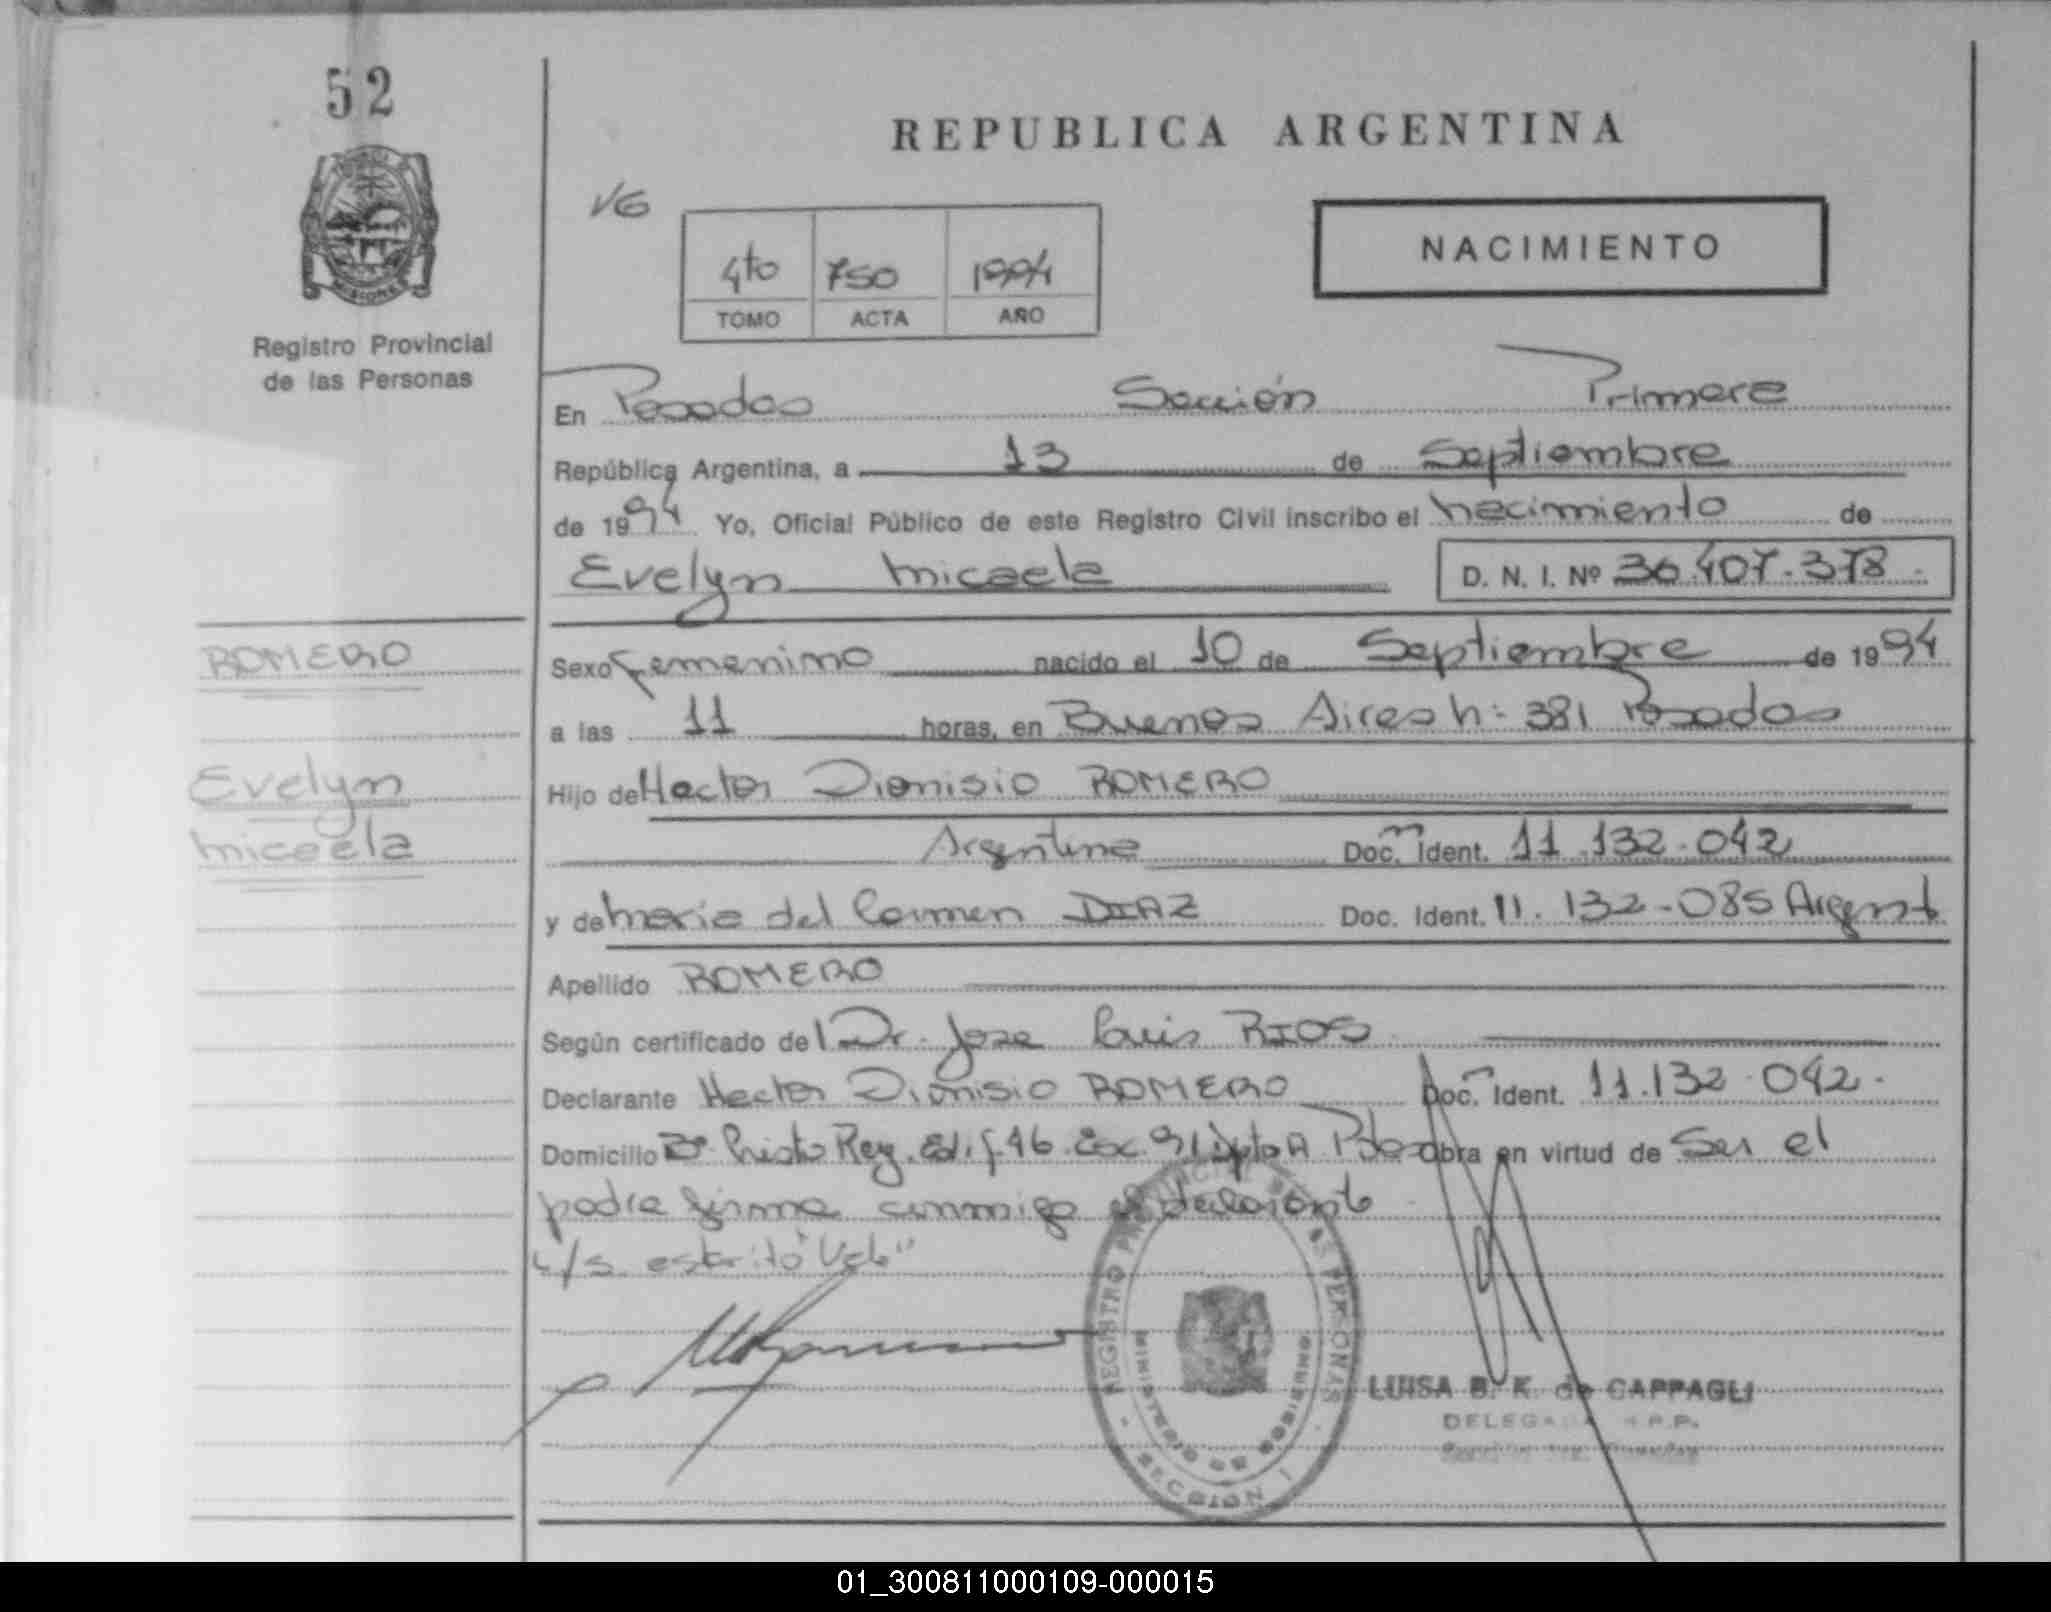 52
REPUBLICA ARGENTINA
VG
NACIMIENTO
4to 750 1994
TOMO ACTA AÑO
MISIONES
Registro Provincial
de las Personas
En Posadas Sección Primera
República Argentina, a 13 de Septiembre
de 1994 Yo, Oficial Público de este Registro Civil inscribo el nacimiento de
Evelyn Micaela D. N. I. Nº 36.407.378.
ROMERO
Sexo femenino nacido el 10 de Septiembre de 1994
a las 11 horas, en Buenos Aires n: 381 Posadas
Evelyn
Micaela
Hijo de Hector Dionisio ROMERO
Argentino Doc. Ident. 11.132.042
y de Maria del Carmen DIAZ Doc. Ident. 11.132-085 Argent
Apellido ROMERO
Según certificado del Dr. Jose Luis RIOS
Declarante Hector Dionisio ROMERO Doc. Ident. 11.132.042.
Domicilio Bº Cristo Rey. Edif 46 Esc. 91 Dpto A Pdas Obra en virtud de Ser el
padre firma conmigo el declarante
s/s escrito
REGISTRO PROVINCIAL DE LAS PERSONAS
MINISTERIO DE GOBIERNO
SECCION 1
LUISA B. K. de CAPPAGLI
DELEGADA R.P.P.
01_300811000109-000015